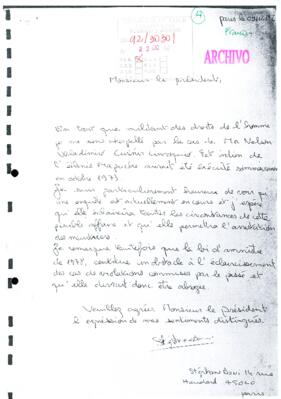 ④
Paris le
France
92/3030
ARCHIVO
Monsieur le président,
En tant que militant des droits de l'homme
je me sens interpellé par le cas de Mr Nelson
Wladimiro
L'élève aurait été exécuté sommairement
en octobre 1973
Je suis particulièrement heureux de voir qu'
une enquête est actuellement en cours et j'espère
qu'elle éclaircira toutes les circonstances de cette
pénible affaire et qu'elle permettra l'arrestation
des meurtriers
Je remarque toutefois que la loi d'amnistie
de 1978, continue à l'éclaircissement
des cas de violations commises par le passé et
qu'elle devrait donc être abrogée.
Veuillez agréer Monsieur le Président
l'expression de mes sentiments distingués.
Stéphane 14 rue
paris